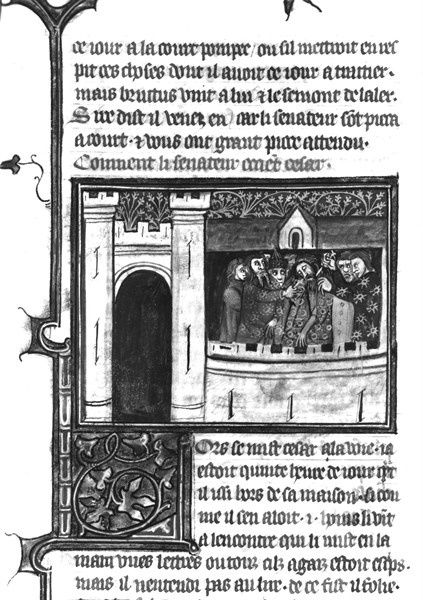 ce iour a la court pompee / ou sil mettroit en res
pit ces choses dont il auoit ce iour a traitier.
mais bruttus vint a lui & le semont de laler.
Sire dist il venez en / car li senateur sōt pieca
a court. & vous ont grant piece attendu.
Coment li senateur cesar.
ORs se mist cesar a la uoie. ia
estoit quinte heure de iour qn̄t
il issi hors de sa maison. si con
me il sen aloit . i . hons li vīt
a lencontre qui li mist en la
main vnes lettres ou tout estoit
mais il nentendi pas au lire. de ce fist il folie.